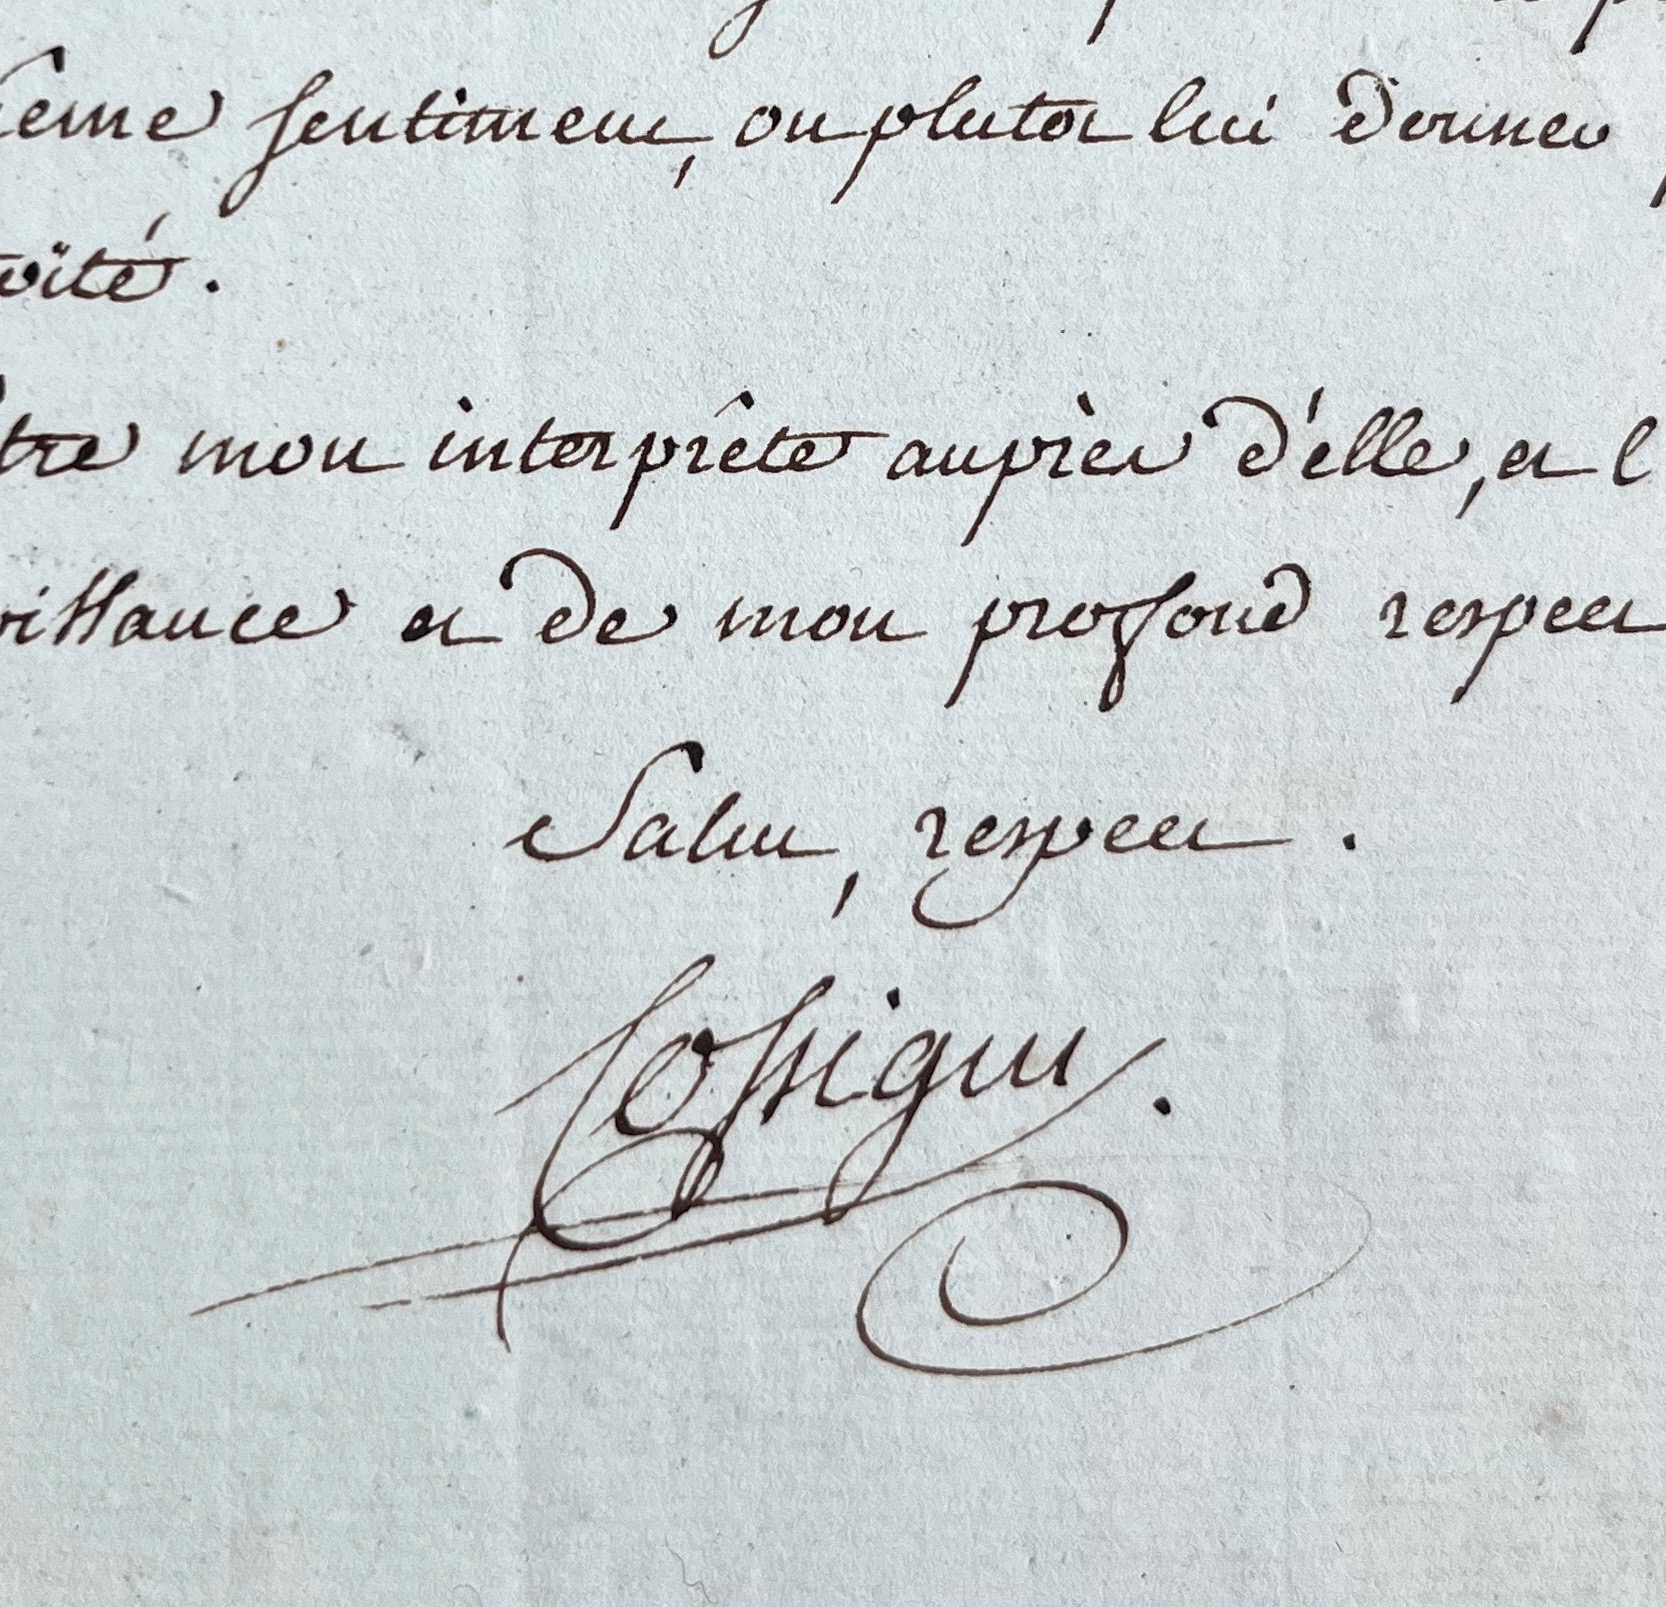 ême sentiment, ou plutot lui donner
oité.
tre mon interprête auprès d'elle, et l
illance et de mon profond respect
Salut, respect.
Cossigny.